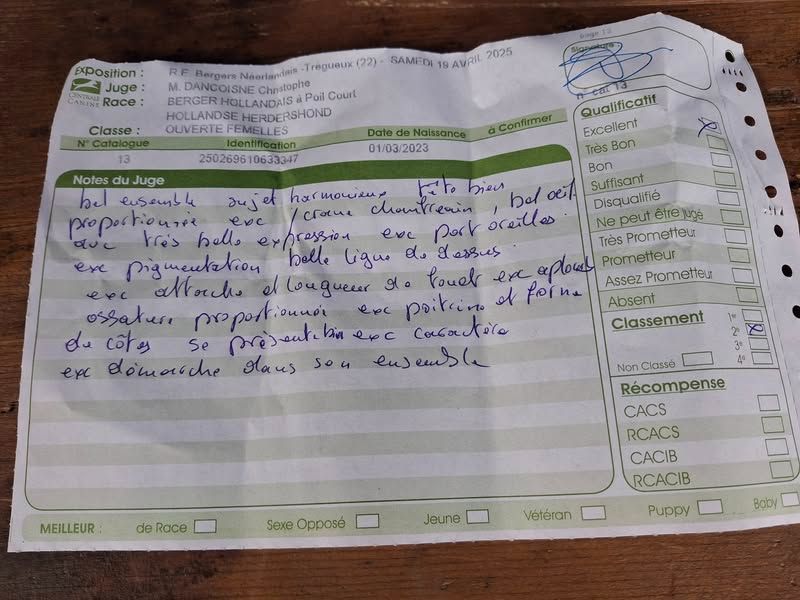 Exposition : R.E. Bergers Néerlandais -Trégueux (22) - SAMEDI 19 AVRIL 2025
Juge : M. DANCOISNE Christophe
Race : BERGER HOLLANDAIS à Poil Court
HOLLANDSE HERDERSHOND
Classe : OUVERTE FEMELLES
CENTRALE CANINE
N° Catalogue Identification Date de Naissance à Confirmer
13 250269610633347 01/03/2023
Notes du Juge
bel ensemble sujet harmonieux tête bien
proportionnée exc /crane chanfrein, bel œil
avec très belle expression exc port oreilles.
exc pigmentation belle ligne de dessus.
exc attache et longueur de fouet exc aplombs
ossature proportionnée exc poitrine et forme
de côtes se présentation exc caractère
exc démarche dans son ensemble
page 13
Signature
n° cat 13
Qualificatif
Excellent X
Très Bon
Bon
Suffisant
Disqualifié
Ne peut être jugé
Très Prometteur
Prometteur
Assez Prometteur
Absent
Classement 1°
2° X
3°
Non Classé 4°
Récompense
CACS
RCACS
CACIB
RCACIB
MEILLEUR : de Race Sexe Opposé Jeune Vétéran Puppy Baby